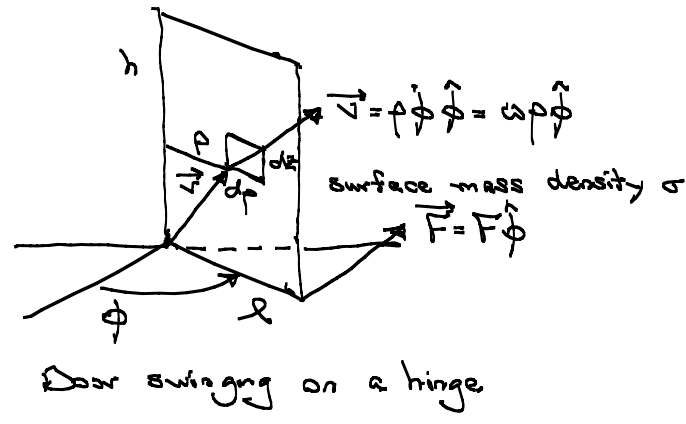 h
v⃗ = ρ φ̇ φ̂ = ω ρ φ̂
ρ
dz
r⃗
dρ
surface mass density σ
F⃗ = F φ̂
φ
ℓ
Door swinging on a hinge